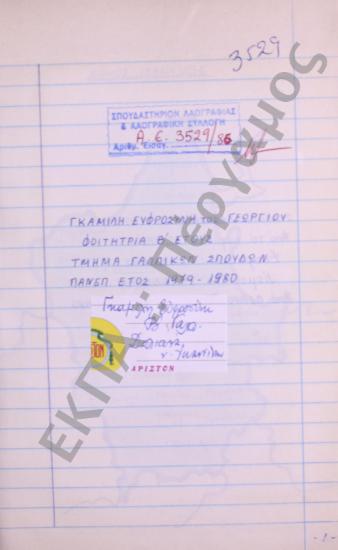 3529
ΣΠΟΥΔΑΣΤΗΡΙΟΝ ΛΑΟΓΡΑΦΙΑΣ
& ΛΑΟΓΡΑΦΙΚΗ ΣΥΛΛΟΓΗ
Αριθμ. Εισαγ. Α.Ε. 3529/86
ΓΚΑΜΙΛΗ ΕΥΦΡΟΣΥΝΗ του ΓΕΩΡΓΙΟΥ
ΦΟΙΤΗΤΡΙΑ Β' ΕΤΟΥΣ
ΤΜΗΜΑ ΓΑΛΛΙΚΩΝ ΣΠΟΥΔΩΝ
ΠΑΝΕΠ. ΕΤΟΣ 1979-1980
Γκαμίλη Ευφροσύνη
Β Γαλ.
ΑΡΙΣΤΟΝ
ΕΚΠΑ :: Πέργαμος
-1-